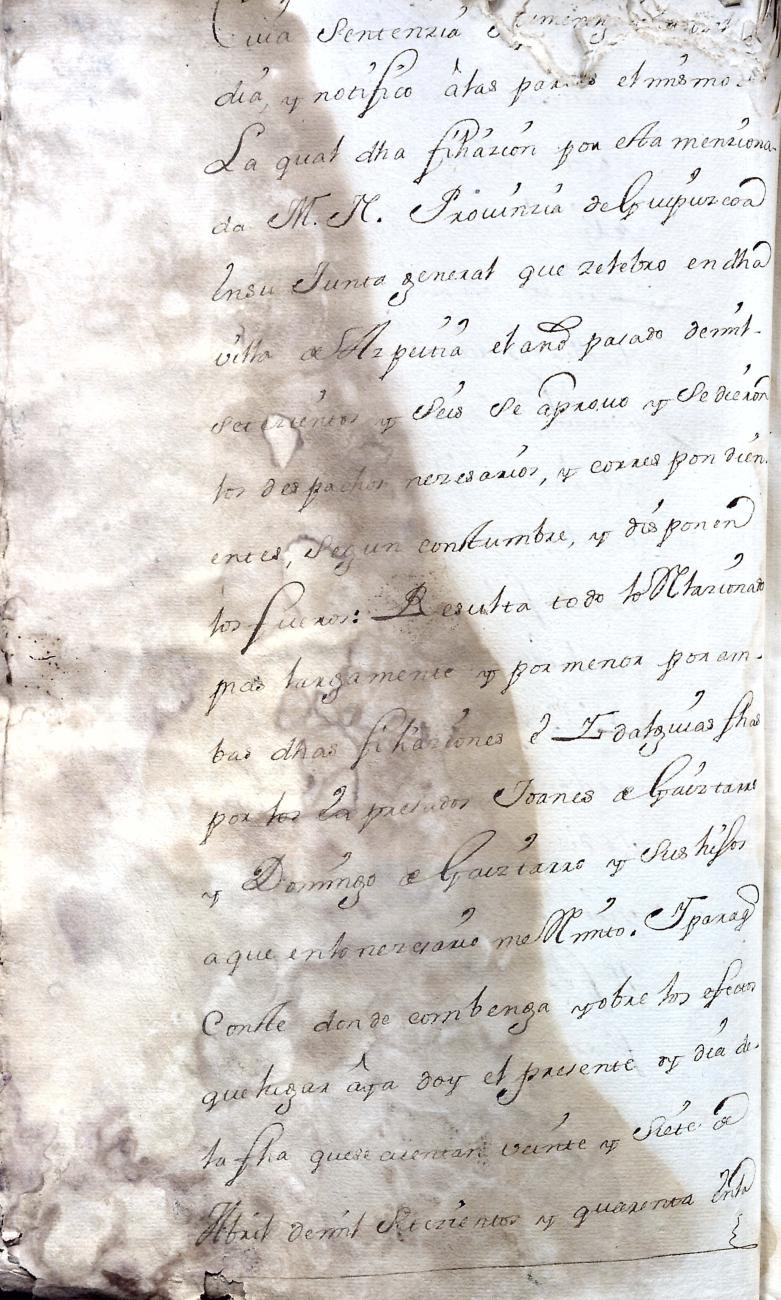 Cuia Sentenzia
dia, y notifico à las partes el mismo
La qual dha filiazion por esta menziona-
da M. N. Prouinzia de Guipuzcoa
en su Junta general que zelebro en dha
villa de Azpeitia el año pasado de mil-
setezientos y seis se aprouo y se dieron
los despachos nezesarios, y correspondien-
entes, segun constumbre, y disponen
los fueros: Resulta todo lo Relazionado
mas largamente y por menor por am-
bas dhas filiaziones è Idalguias fhas
por los Ea presados Joanes de Gaiztarro
y Domingo de Gaiztarro y sus hijos
a que en lo nezesario me Rmito. Y para q
Conste donde combenga y obre los efectos
que lugar àya doy el presente oy dia de
la fha que se cuentan veinte y siete de
Abril de mil setezientos y quarenta en la